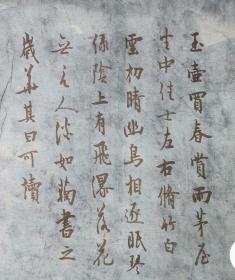 玉壺買春賞雨茅屋
坐中佳士左右脩竹白
雲初晴幽鳥相逐眠琴
綠陰上有飛瀑落花
無言人淡如菊書之
歲華其曰可讀